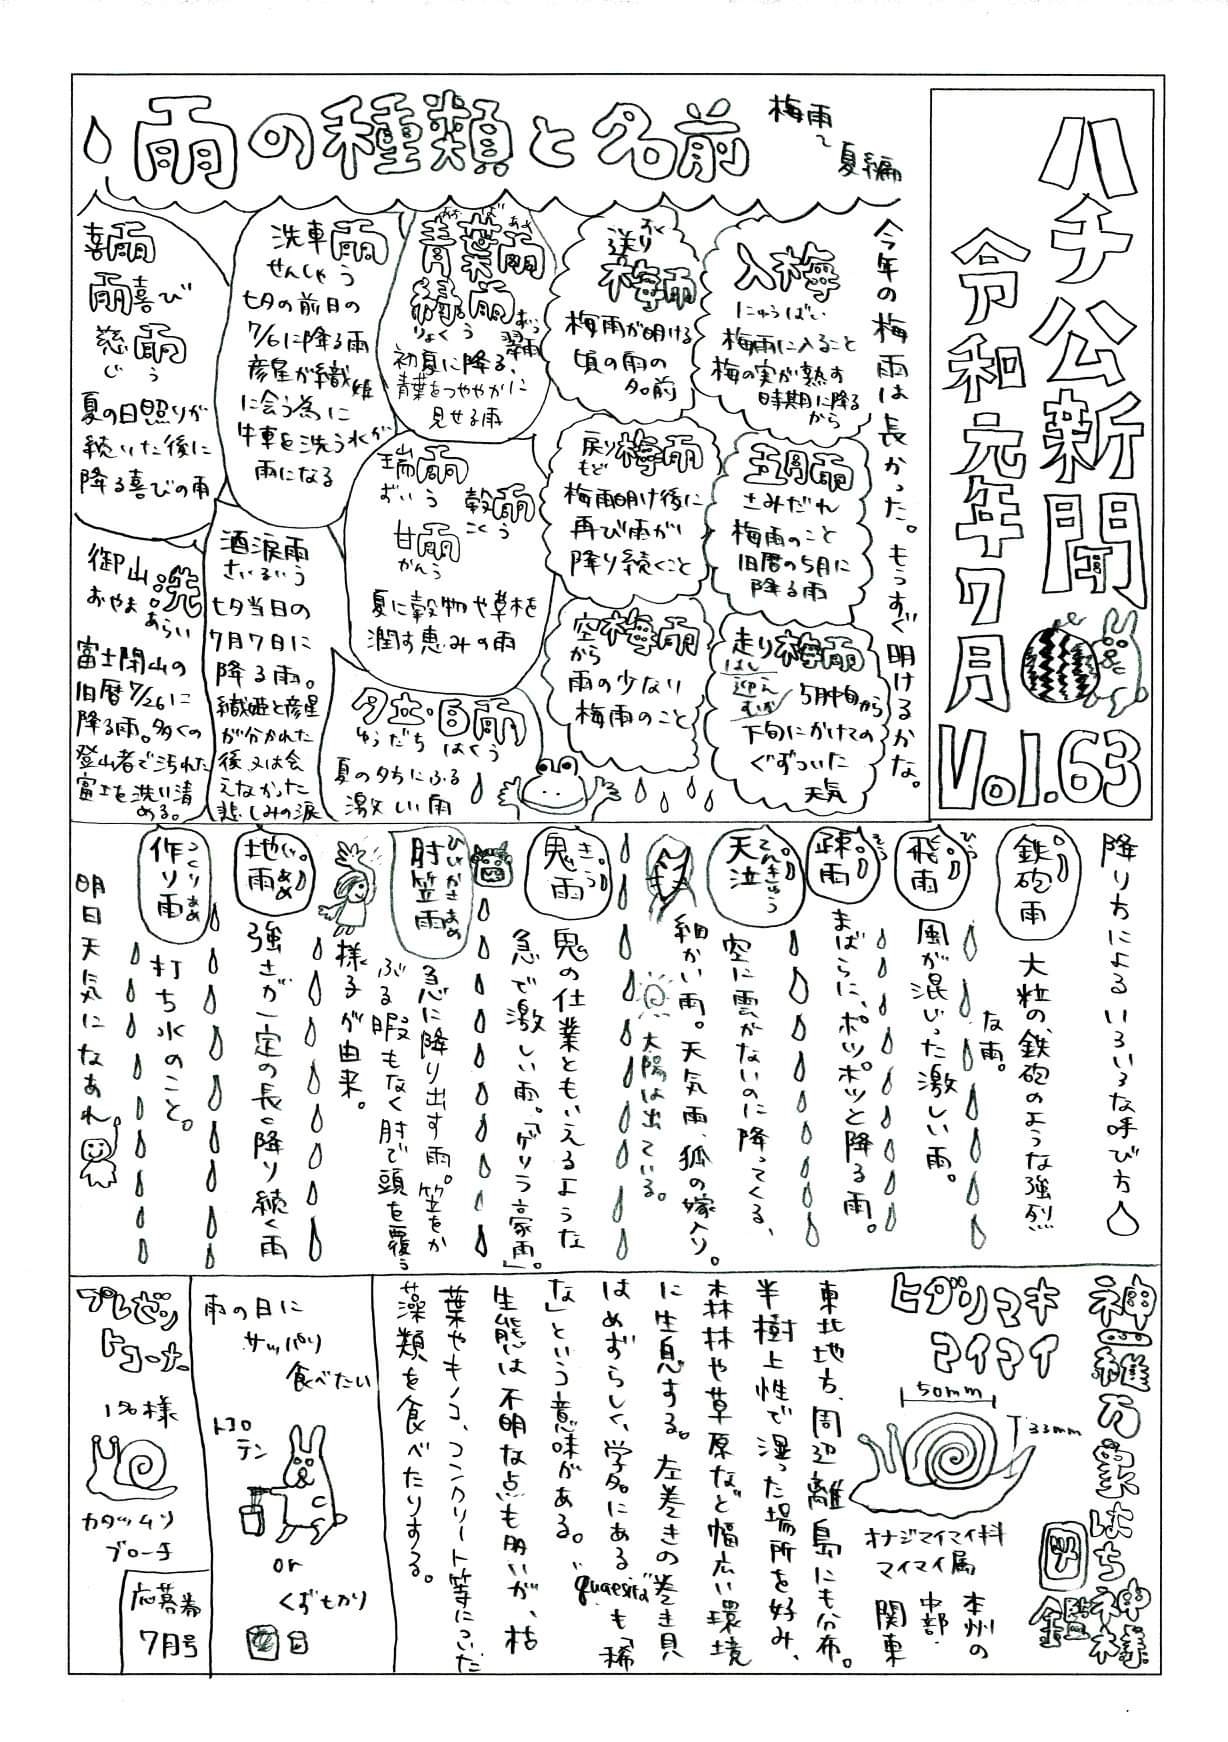 ハチ公新聞
令和元年7月
Vol.63
雨の種類と名前
梅雨〜夏編
今年の梅雨は長かった。もうすぐ明けるかな。
入梅
にゅうばい
梅雨に入ること
梅の実が熟す
時期に降る
から
五月雨
さみだれ
梅雨のこと
旧暦の5月に
降る雨
走り梅雨
はし
迎え
むかえ
5月中旬から
下旬にかけての
ぐずついた
天気
送り梅雨
梅雨が明ける
頃の雨の
名前
戻り梅雨
もど
梅雨明け後に
再び雨が
降り続くこと
空梅雨
から
雨の少ない
梅雨のこと
青葉雨
あおばあめ
緑雨
りょくう
翠雨
初夏に降る、
青葉をつややかに
見せる雨
瑞雨
ずいう
穀雨
こくう
甘雨
かんう
夏に穀物や草木を
潤す恵みの雨
夕立・白雨
ゆうだち はくう
夏の夕ちにふる
激しい雨
洗車雨
せんしゃう
七夕の前日の
7/6に降る雨
彦星が織姫
に会う為に
牛車を洗う水が
雨になる
酒涙雨
さいるいう
七夕当日の
7月7日に
降る雨。
織姫と彦星
が分かれた
後又は会
えなかった
悲しみの涙
喜雨
雨喜び
慈雨
じう
夏の日照りが
続いた後に
降る喜びの雨
御山洗
おやまあらい
富士閉山の
旧暦7/26に
降る雨。多くの
登山者で汚れた
富士を洗い清
める。
降り方によるいろいろな呼び方
鉄砲雨
大粒の、鉄砲のような強烈
な雨。
飛雨
ひう
風が混じった激しい雨。
疎雨
そう
まばらに、ポツポツと降る雨。
天泣
てんきゅう
空に雲がないのに降ってくる、
細かい雨。天気雨、狐の嫁入り。
太陽は出ている。
鬼雨
きう
鬼の仕業ともいえるような
急で激しい雨。「ゲリラ豪雨」。
肘笠雨
ひじかさあめ
急に降り出す雨。笠をか
ぶる暇もなく肘で頭を覆う
様子が由来。
地雨
じあめ
強さが一定の長く降り続く雨
作り雨
つくりあめ
打ち水のこと。
明日天気になあれ
神羅万象はち神様
図鑑
ヒダリマキ
マイマイ
50mm
33mm
オナジマイマイ科
マイマイ属
本州の
中部・
関東
東北地方、周辺離島にも分布。
半樹上性で湿った場所を好み、
森林や草原など幅広い環境
に生息する。左巻きの巻き貝
はめずらしく、学名にある"quaesita"も「稀
な」という意味がある。
生態は不明な点も多いが、枯
葉やキノコ、コンクリート等についた
藻類を食べたりする。
雨の日に
サッパリ
食べたい
トコロ
テン
or
くずもち
プレゼン
トコーナー
1名様
カタツムリ
ブローチ
応募券
7月号